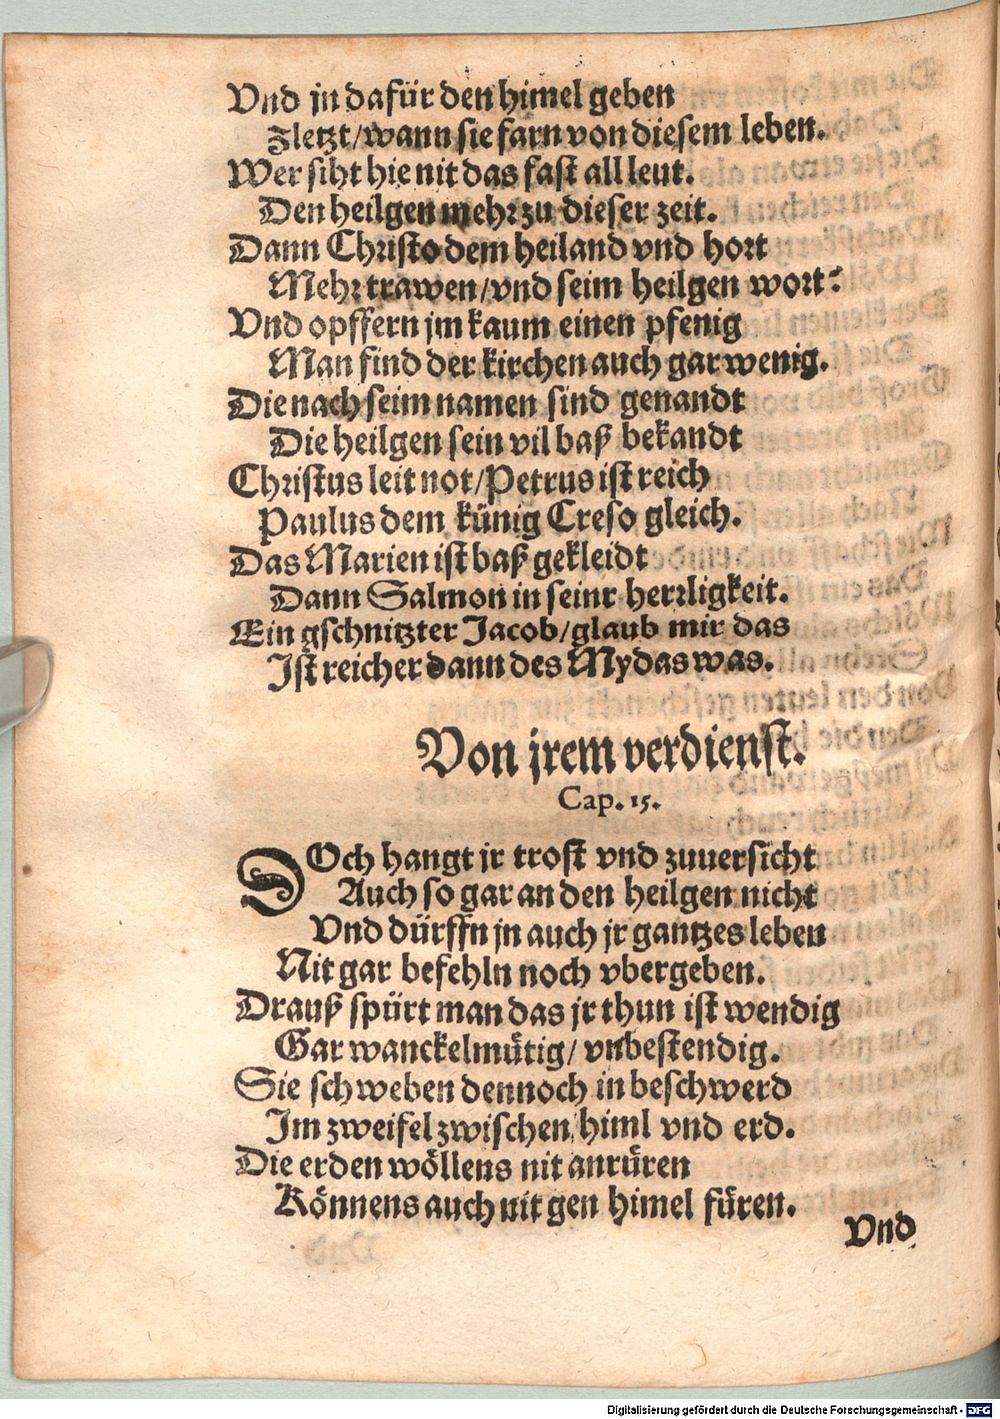 Vnd jn dafür den himel geben
Zletzt/wann sie farn von diesem leben.
Wer siht hie nit das fast all leut.
Den heilgen mehr zu dieser zeit.
Dann Christo dem heiland vnd hort
Mehr trawen/vnd seim heilgen wort?
Vnd opffern jm kaum einen pfenig
Man find der kirchen auch gar wenig.
Die nach seim namen sind genandt
Die heilgen sein vil baß bekandt
Christus leit not/Petrus ist reich
Paulus dem künig Creso gleich.
Das Marien ist baß gekleidt
Dann Salmon in seinr herrligkeit.
Ein gschnitzter Jacob/glaub mir das
Ist reicher dann des Mydas was.
Von jrem verdienst.
Cap. 15.
DOch hangt jr trost vnd zuuersicht
Auch so gar an den heilgen nicht
Vnd dürffn jn auch jr gantzes leben
Nit gar befehln noch vbergeben.
Drauß spürt man das jr thun ist wendig
Gar wanckelmütig/ vnbestendig.
Sie schweben dennoch in beschwerd
Im zweifel zwischen himl vnd erd.
Die erden wöllens nit anrüren
Könnens auch nit gen himel füren.
Vnd
Digitalisierung gefördert durch die Deutsche Forschungsgemeinschaft - DFG